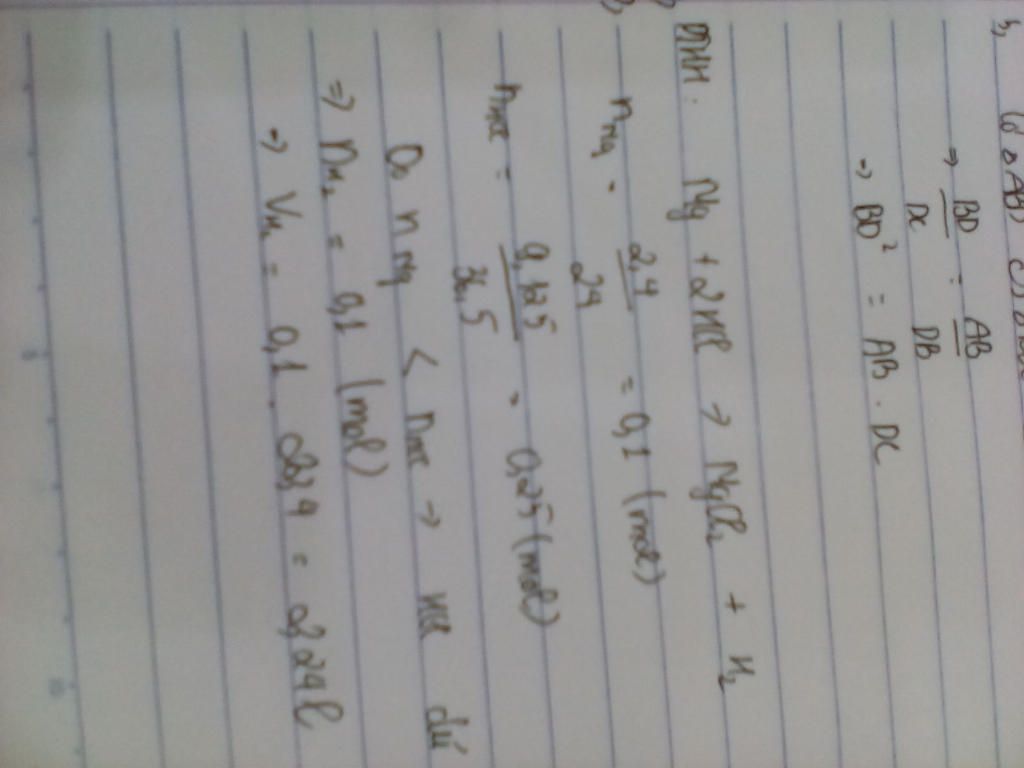 b,
⇒ BD/DC = AB/DB
→ BD² = AB . DC
PTHH : Mg + 2HCl → MgCl₂ + H₂
nMg = 2,4/24 = 0,1 (mol)
nHCl = 9,125/36,5 = 0,25 (mol)
Do nMg < nHCl → HCl dư
⇒ nH₂ = 0,1 (mol)
→ VH₂ = 0,1 . 22,4 = 2,24l